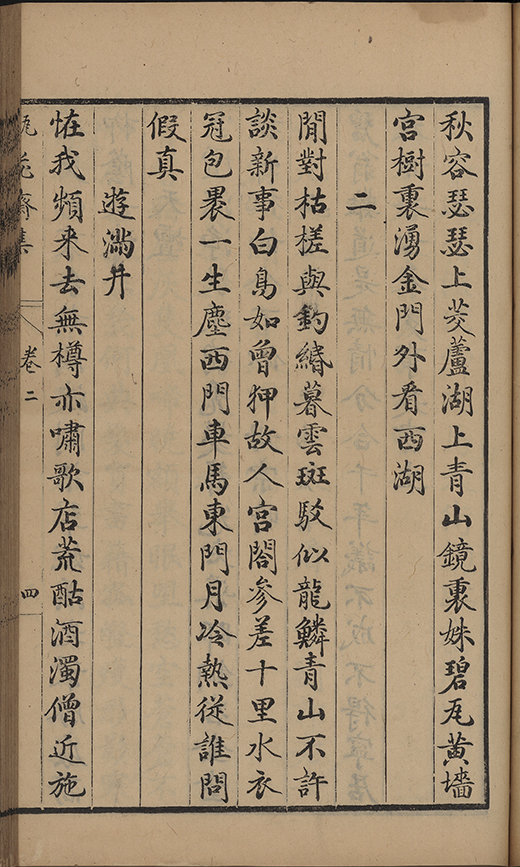 秋容瑟瑟上茭蘆湖上青山鏡裏姝碧瓦黃墻
宮樹裏湧金門外看西湖
二
閒對枯槎與釣緡暮雲斑駁似龍鱗青山不許
談新事白鳥如曾狎故人宮閣參差十里水衣
冠包裹一生塵西門車馬東門月冷熱從誰問
假真
遊滿井
恠我頻来去無樽亦嘯歌店荒酤酒濁僧近施
花齋集
卷二
四